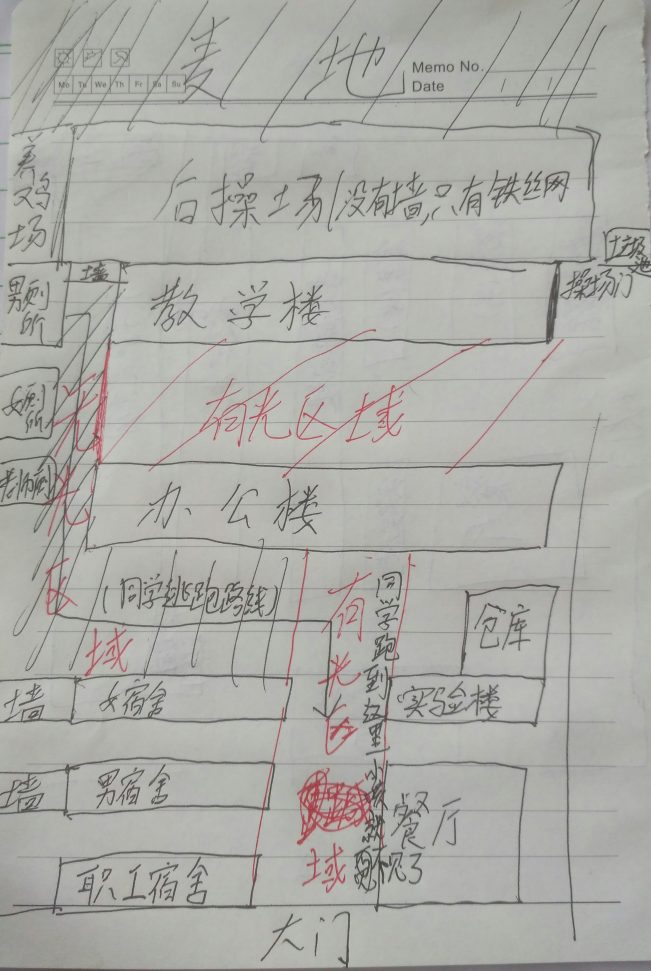 麦地
Memo No.
Mo Tu We Th Fr Sa Su
Date
养鸡场
后操场(没有墙,只有铁丝网
垃圾池
男厕所
墙
教学楼
操场门
女厕所
有光区域
老师厕
办公楼
无光区域
(同学逃跑路线)
有光区域
同学跑到这里小孩就不见了
仓库
墙
女宿舍
实验楼
墙
男宿舍
餐厅
职工宿舍
大门